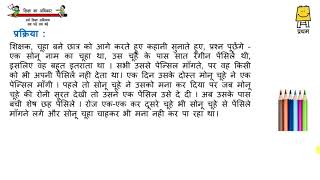 शिक्षा का अधिकार
सर्व शिक्षा अभियान
सब पढ़ें सब बढ़ें
प्रथम
प्रक्रिया :
शिक्षक, चूहा बने छात्र को आगे करते हुए कहानी सुनाते हुए, प्रश्न पूछेंगे -
एक सोनू नाम का चूहा था, उस चूहे के पास सात रंगीन पेंसिलें थी,
इसलिए वह बहुत इतराता था । सभी उससे पेन्सिल माँगते, पर वह किसी
को भी अपनी पैंसिले नही देता था। एक दिन उसके दोस्त मोनू चूहे ने एक
पेन्सिल माँगी । पहले तो सोनू ने उसको मना कर दिया पर जब मोनू
चूहे की रोनी सूरत देखी तो उसने एक पेंसिल उसे दे दी । अब उसके पास
बची शेष छह पेंसिलें । रोज एक-एक कर दूसरे चूहे भी सोनू चूहे से पेंसिलें
माँगने लगे और सोनू चूहा चाहकर भी मना नही कर पा रहा था।